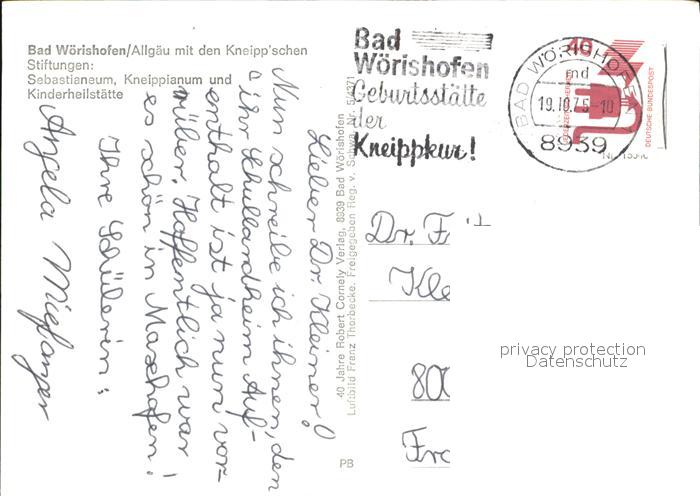 Bad Wörishofen/Allgäu mit den Kneipp'schen
Stiftungen:
Sebastianeum, Kneippianum und
Kinderheilstätte
Lieber Dr. Kleiner!
Nun schreibe ich ihnen, den
ihr Schullandheim Auf-
enthalt ist ja nun vor-
rüber. Hoffentlich war
es schön in Maxhofen!
Ihre Schülerin:
Angela
40 Jahre Robert Cornely Verlag, 8939 Bad Wörishofen
Luftbild Franz Thorbecke. Freigegeben Reg. v. Schwa. Nr. 5/4371
PB
Bad
Wörishofen
Geburtsstätte
der
Kneippkur!
BAD WÖRISHOFEN
md
19.10.75-10
8939
40
DEUTSCHE BUNDESPOST
Dr. F
Kle
800
Fra
privacy protection
Datenschutz